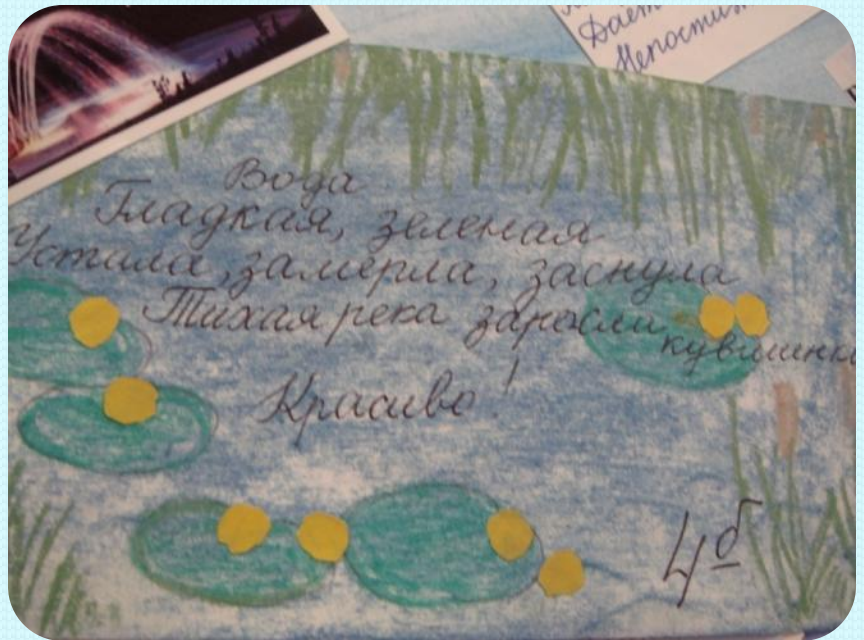 Дает
Непости
Вода
Гладкая, зеленая
Устала, замерла, заснула
Тихая река заросли
кувшинки
Красиво!
4б